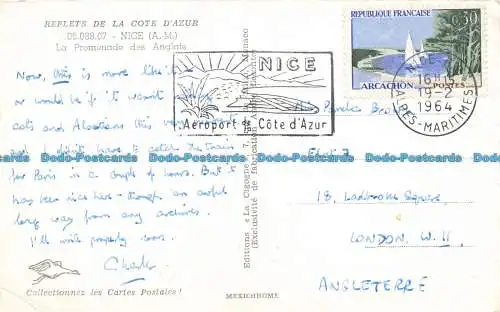 REFLETS DE LA COTE D'AZUR
06.088.07 - NICE (A.-M.)
La Promenade des Anglais
Now, this is more like it
or would be if it wasn't
cats and Alsatians this
and I didn't have to catch the train
for Paris in a couple of hours. But it
has been nice here - though an awful
long way from any archives.
I'll write properly soon.
Charles
Collectionnez les Cartes Postales !
MEXICHROME
Editions « La Cigogne »
(Exclusivité de fabrication
Monaco
NICE
Aéroport de Côte d'Azur
REPUBLIQUE FRANÇAISE
0,30
ARCACHON
POSTES
NICE
16H15
19-2
1964
ALPES-MARITIMES
18, Ladbroke Square,
LONDON, W.11
ANGLETERRE
Dodo-Postcards Dodo-Postcards Dodo-Postcards Dodo-Postcards